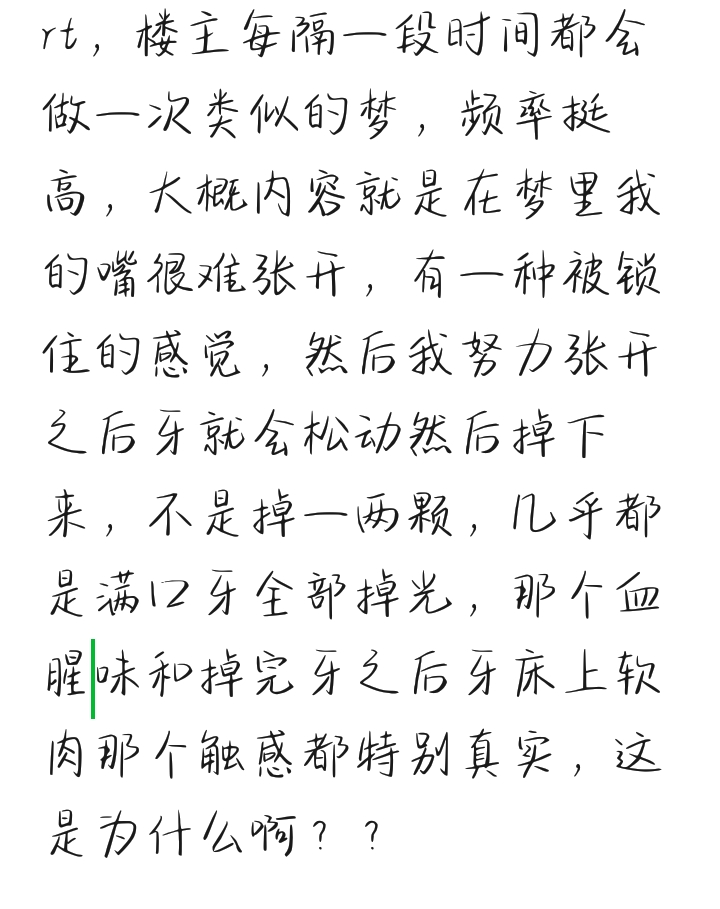 rt，楼主每隔一段时间都会
做一次类似的梦，频率挺
高，大概内容就是在梦里我
的嘴很难张开，有一种被锁
住的感觉，然后我努力张开
之后牙就会松动然后掉下
来，不是掉一两颗，几乎都
是满口牙全部掉光，那个血
腥味和掉完牙之后牙床上软
肉那个触感都特别真实，这
是为什么啊？？